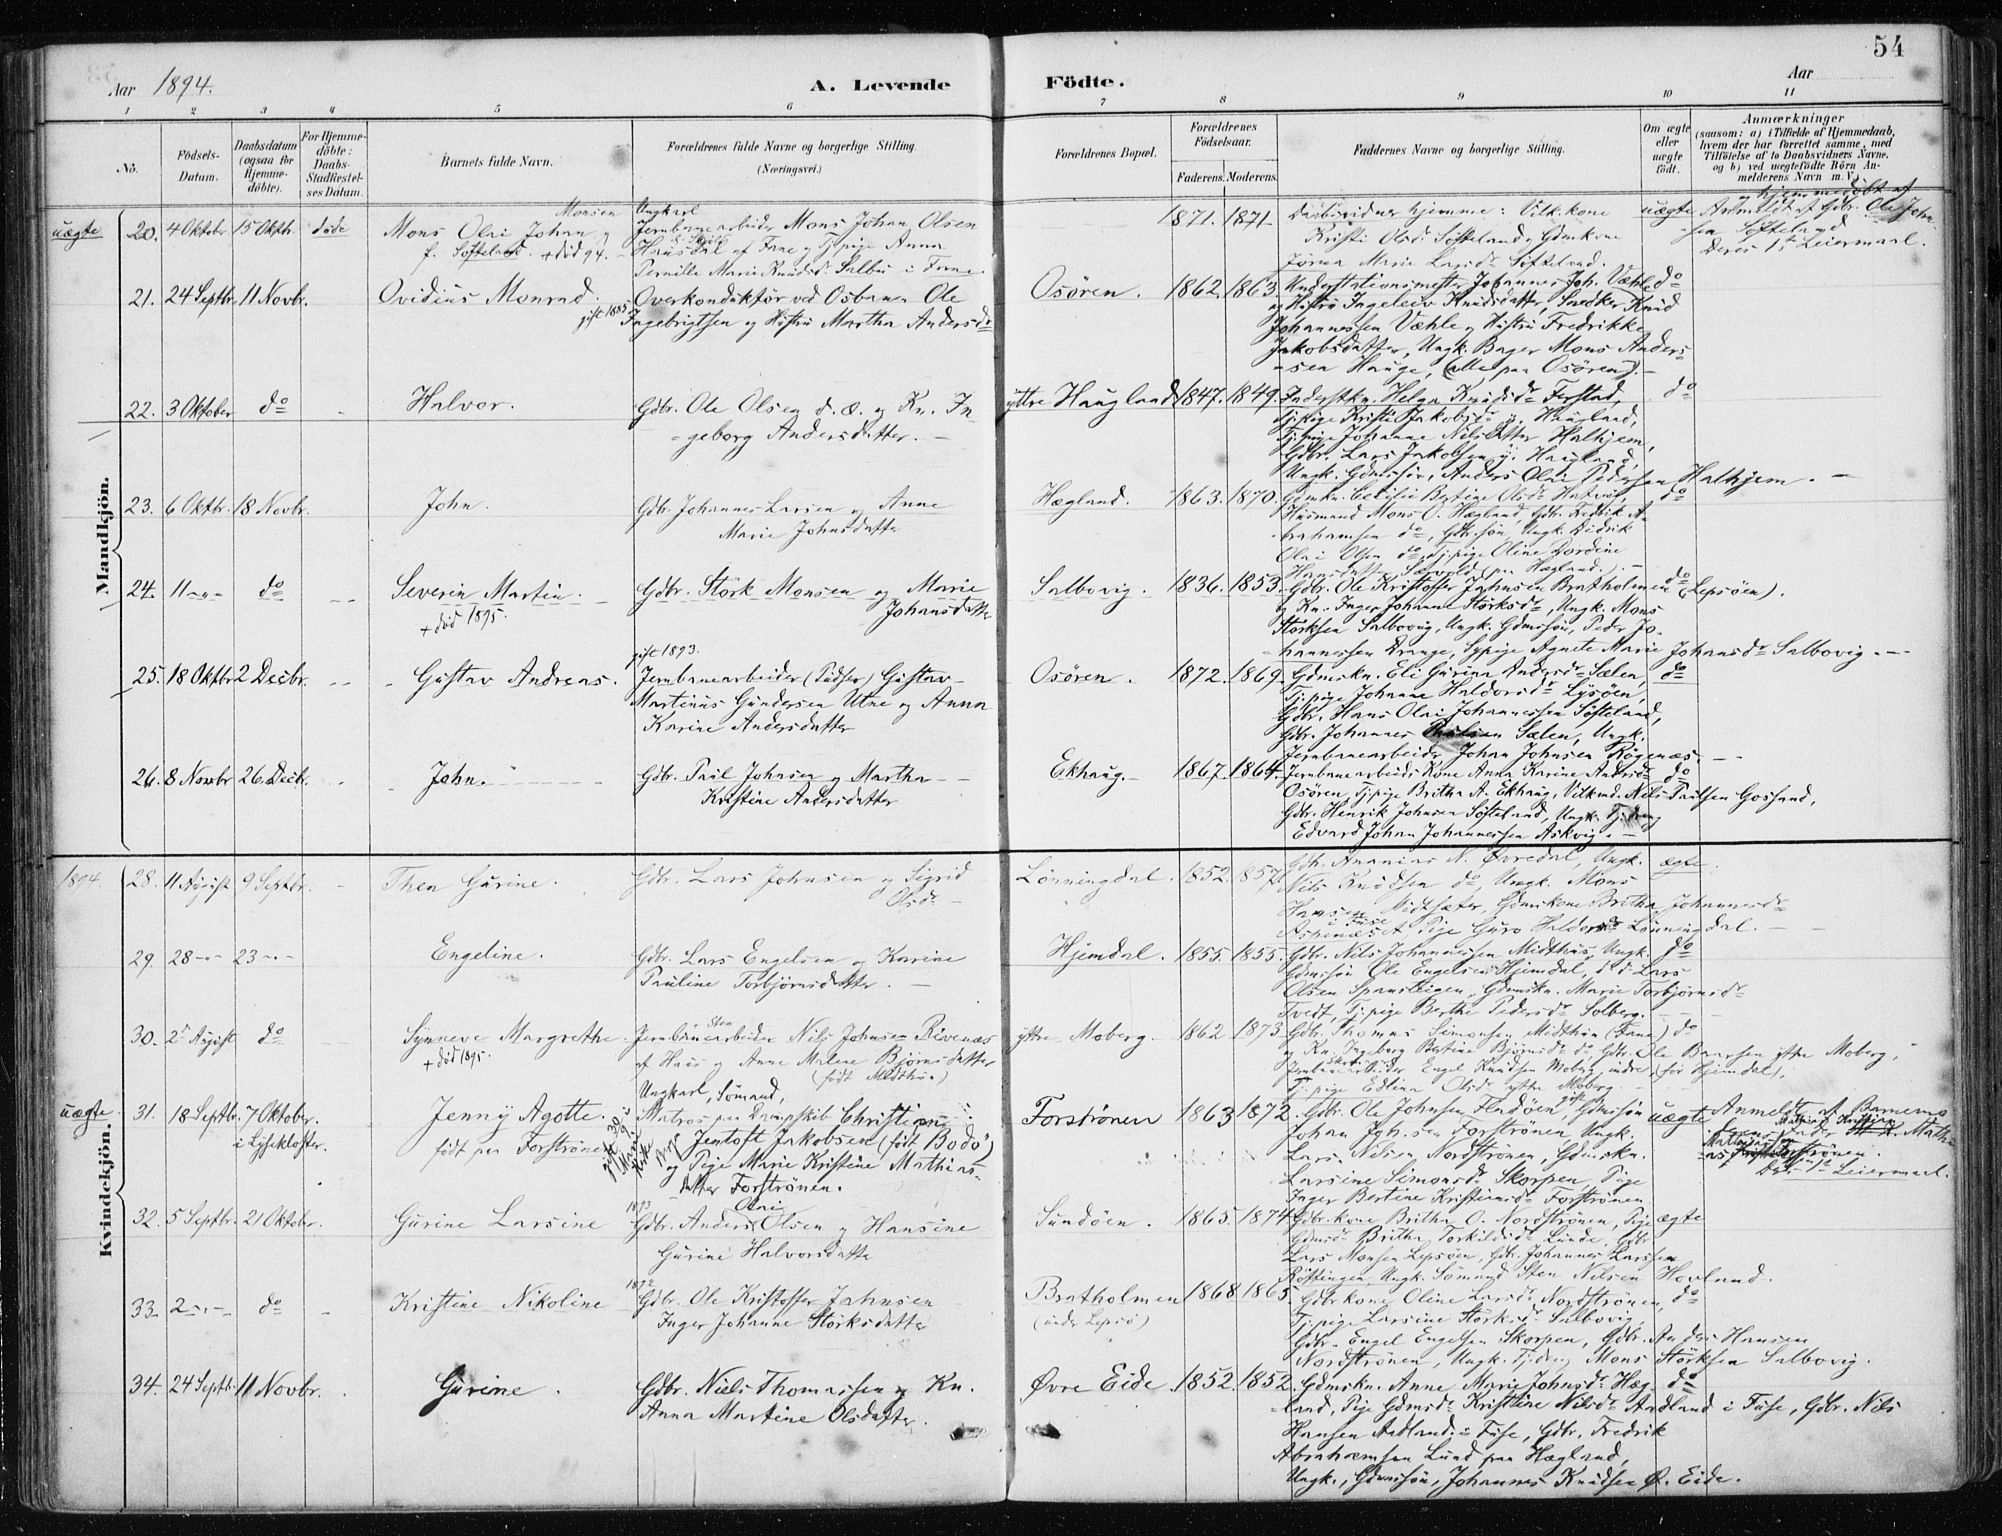 54
Aar 1894. A. Levende Födte. Aar
1 2 3 4 5 6 7 8 9 10 11
No. Födsels-Datum. Daabsdatum (ogsaa för Hjemme-döbte). For Hjemme-döbte: Daabs-Stadfæstel-ses Datum. Barnets fulde Navn. Forældrenes fulde Navne og borgerlige Stilling. (Næringsvei.) Forældrenes Bopæl. Forældrenes Födselsaar. Faderens. Moderens. Faddernes Navne og borgerlige Stilling. Om ægte eller uægte födt. Anmærkninger (saasom: a) i Tilfælde af Hjemmedaab, hvem der har forrettet samme, med Tilföielse af to Daabsvidners Navne, og b) ved uægtefödte Börn An-melderens Navn m. V.)
Mandkjön.
uægte 20. 4 Oktober 15 Oktbr. döde Mons Olai Johan
f. Søfteland. + död 94.
Ungkarl
Jernbanearbeider Mons Johan Olsen
Hausdal af Fane og Tj.pige Anna
Pernille Marie Knudsd. Salbu i Fane
1871. 1871.
Daabsvidner hjemme: Vilk. kone
Kristi Olsd. Søfteland, Gdmkone
Marie Larsdr. Søfteland.
uægte
hjemmedöbt af
Anmeldt af Gdbr. Ole John-
sen Søfteland
Deres 1ste Leiermaal.
21. 24 Septbr. 11 Novbr. Ovidius Monrad.
gift 1885
Overkonduktør ved Osbanen Ole
Ingebrigtsen og Hustru Martha Andersdr
Osören. 1862. 1863.
Understationsmester Johannes Joh. Væhle
og Hustru Ingeleiv Knudsdatter, Snedker Knud
Johannessen Væhle og Hustru Fredrikke
Jakobsdatter, Ungk. Bager Mons Anders-
sen Hauge, (alle paa Osören).
do
22. 3 Oktober do Halvor.
Gdbr. Ole Olsen d. æ. og Kn. In-
geborg Andersdatter.
yttre Haugland 1847. 1849.
Inderstkn. Helga Knudsdr. Ferstad,
Tj.pige Kristi Jakobsdr. y. Haugland,
Tj.pige Johanne Nilsdatter Halhjem,
Gdbr. Lars Jakobsen y. Haugland,
Ungk. Gdmssön, Anders Olai Pedersen Halhjem.
do
23. 6 Oktbr. 18 Novbr. John.
Gdbr. Johannes Larsen og Anne
Marie Johnsdatter
Hægland. 1863. 1870.
Gdmkn. Bertine Olsdr. Hatvig,
Husmand Mons O. Hægland, Gdbr. Fredrik A-
brahamsen do, Gdbrssön, Ungk. Didrik
Olai Olsen do, Tj.pige Oline Dordine
(paa Hægland.)
do
24. 11 do Severin Martin.
+ död 1895.
Gdbr. Störk Monsen og Marie
Johansdatter
Salbovig. 1836. 1853.
Gdbr. Ole Kristoffer Jahnsen Bratholmen (Lepsöen).
og Kn. Inger Johanne Störksdr., Ungk. Mons
Störksen Salbovig, Ungk. Gdmssön, Peder Jo-
hannessen Drange, Sypige Agnete Marie Johansdr. Salbovig.
do
25. 18 Oktbr 2 Decbr. Gustav Andreas.
gift 1893.
Jernbanearbeider (Pudser) Gustav
Martinus Gundersen Utne og Anna
Karine Andersdatter
Osören. 1872. 1869.
Gdmskn. Eli Gurina Andersdr. Sælen,
Tj.pige Johanne Haldorsdr. Lysöen,
Gdbr. Hans Olai Johannessen Søfteland,
Gdbr. Johannes Sælen, Ungk.
Jernbanearbeider Johan Johnsen Røgenæs.
do
26. 8 Novbr 26. Decbr. John.
Gdbr. Paul Johnsen og Martha
Kristine Andersdatter
Ekhaug. 1867. 1864.
Jernbanearbeids Kone Anna Karine Andersdr
Osören, Tj.pige Britha A. Ekhaug, Vilkmd. Nils Paulsen Gossand,
Gdbr. Henrik Johnsen Søfteland, Ungk. Tj.dreng
Edvard Johan Johannessen Askvig.
do
Kvindekjön.
1894. 28. 11 August 9 Septbr. Thea Gurine.
Gdbr. Lars Johnsen og Sigrid
Olsdr
Lönningdal. 1852. 1857.
Gdbr. Ananias N. Øvredal, Ungk.
Nils Knudsen do, Ungk. Mons
Hansen Midtsæter, Gdmskone Britha Johannesdr
i Fuse, Pige Guro Haldorsdr Lönningdal.
ægte.
29. 28 23 Engeline.
Gdbr. Lars Engelsen og Karine
Pauline Torbjörnsdatter.
Hjemdal. 1855. 1855.
Gdbr. Nils Johannessen Midthus, Ungk.
Gdmssön Ole Engelsen Hjemdal, do do Lars
Olsen Spansteigen, Gdmskn. Marie Torbjörnsdr
Tvedt, Tj.pige Berthe Pedersdr. Solberg.
do
30. 2 August do Synneve Margrethe.
+ död 1895.
Jernbanearbeider Nils Johnsen Rivenæs
af Haus og Anne Malene Björnsdatter
(född Midthun)
yttre Moberg. 1862 1873
Gdbr. Thomas Simonsen Midthun (Fane)
og Kn. Ingeborg Bertine Björnsdr. do, Gdbr. Ole Baarsen yttre Moberg,
Jernbanearbeider Engel Knudsen Moberg indre (för Hjemdal),
Tj.pige Edlina Olsdr. yttre Moberg.
do
uægte. 31. 18 Septbr. 7 Oktober.
i Lyseklöster.
Jenny Agotte.
födt paa Forströnen
Ungkarl, Sömand,
Matros paa Dampskib Christian
Jentoft Jakobsen (född Bodö)
og Pige Marie Kristine Mathias-
datter Forströnen.
Forströnen 1863 1872.
Gdbr. Ole Johnsen Flendöen, Gdmssön
Johan Joh.sen Forströnen, Ungk.
Lars Nilsen Nordströnen, Gdmskn.
Larsine Simonsdr. Skorpen, Pige
Inger Bertine Kristiansdr. Forströnen.
uægte
Anmeldt af Barnets
Forströnen.
Leiermaal.
32. 5 Septbr. 21 Oktober. Gurine Larsine
1893
Olai
Gdbr. Anders Olsen og Hansine
Gurine Halvorsdatter
Sundöen. 1865. 1874
Gdbr. kone Britha O. Nordströnen, Pige
Gdmsdr. Britha Torkildsdr. Lunde, Gdbr
Lars Monsen Lepsöen, Gdbr. Johannes Larsen
Röttingen, Ungk. Sömand Sten Nilsen Hovland.
ægte
33. 2 do Kristine Nikoline
1892
Gdbr. Ole Kristoffer Jahnsen
Inger Johanne Störksdatter
Bratholmen
(under Lepsö)
1868 1865
Gdbrkone Oline Larsdr. Nordströnen,
Tj.pige Larsine Störksdr. Salbovig,
Gdbr. Engel Engelsen Skorpen, Gdbr. Anders Hansen
Nordströnen, Ungk. Tj.dreng Mons Störksen Salbovig.
do
34. 24 Septbr. 11 Novbr. Gurine.
Gdbr. Niels Thomassen og Kn.
Anna Martine Olsdatter.
Øvre Eide. 1852. 1852.
Gdmskn. Anne Marie Johnsdr. Hæg-
land, Pige Gdmsdr. Kristine Nilsdr. Aadland i Fuse, Gdbr. Nils
Hansen Aadland i Fuse, Gdbr. Fredrik
Abrahamsen Lund paa Hægland,
Ungk., Gdmssön, Johannes Knudsen Ø. Eide.
do